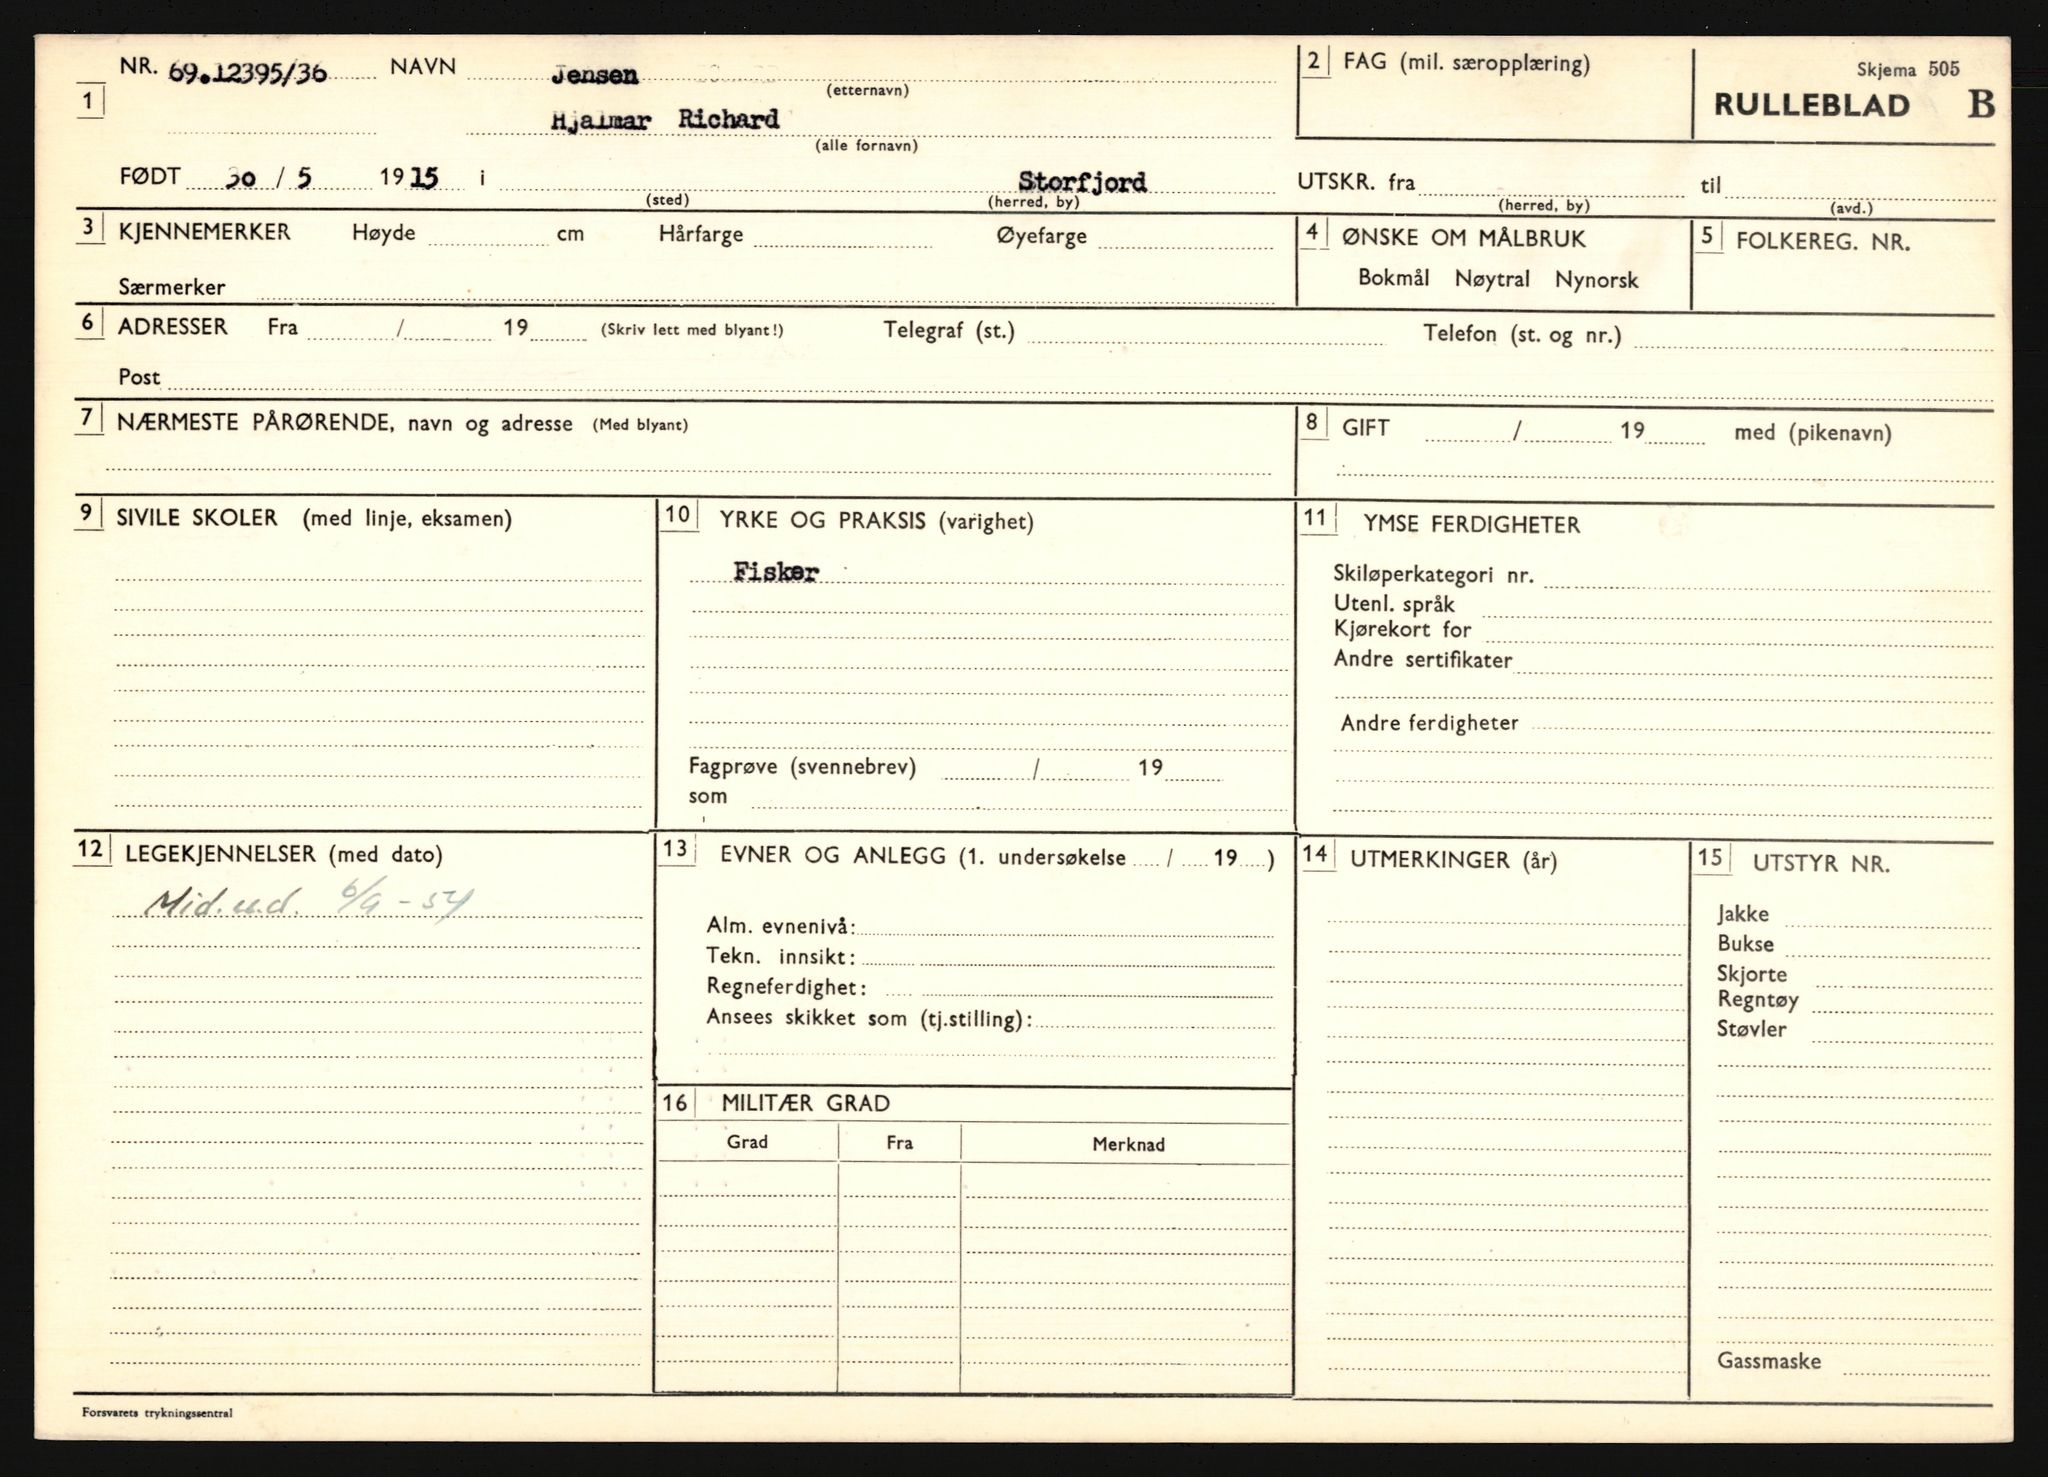 NR. 69.12395/36 NAVN Jensen
(etternavn)
1
Hjalmar Richard
(alle fornavn)
2 FAG (mil. særopplæring)
Skjema 505
RULLEBLAD B
FØDT 30 / 5 1915 i Storfjord
(sted) (herred, by)
UTSKR. fra til
(herred, by) (avd.)
3 KJENNEMERKER Høyde cm Hårfarge Øyefarge
Særmerker
4 ØNSKE OM MÅLBRUK
Bokmål Nøytral Nynorsk
5 FOLKEREG. NR.
6 ADRESSER Fra / 19 (Skriv lett med blyant!) Telegraf (st.) Telefon (st. og nr.)
Post
7 NÆRMESTE PÅRØRENDE, navn og adresse (Med blyant)
8 GIFT / 19 med (pikenavn)
9 SIVILE SKOLER (med linje, eksamen)
10 YRKE OG PRAKSIS (varighet)
Fisker
Fagprøve (svennebrev) / 19
som
11 YMSE FERDIGHETER
Skiløperkategori nr.
Utenl. språk
Kjørekort for
Andre sertifikater
Andre ferdigheter
12 LEGEKJENNELSER (med dato)
Mid.u.d. 6/9-54
13 EVNER OG ANLEGG (1. undersøkelse / 19 )
Alm. evnenivå:
Tekn. innsikt:
Regneferdighet:
Ansees skikket som (tj.stilling):
14 UTMERKINGER (år)
15 UTSTYR NR.
Jakke
Bukse
Skjorte
Regntøy
Støvler
Gassmaske
16 MILITÆR GRAD
Grad Fra Merknad
Forsvarets trykningssentral